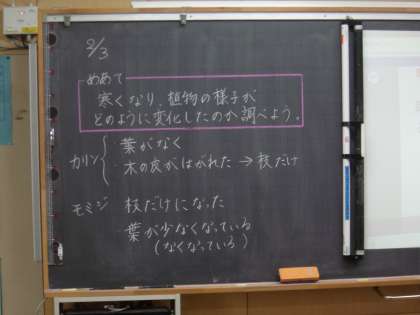 2/3
めあて
寒くなり、植物の様子が
どのように変化したのか調べよう。
カリン
葉がなく
・木の皮がはがれた → 枝だけ
モミジ 枝だけになった
葉が少なくなっている
(なくなっている)